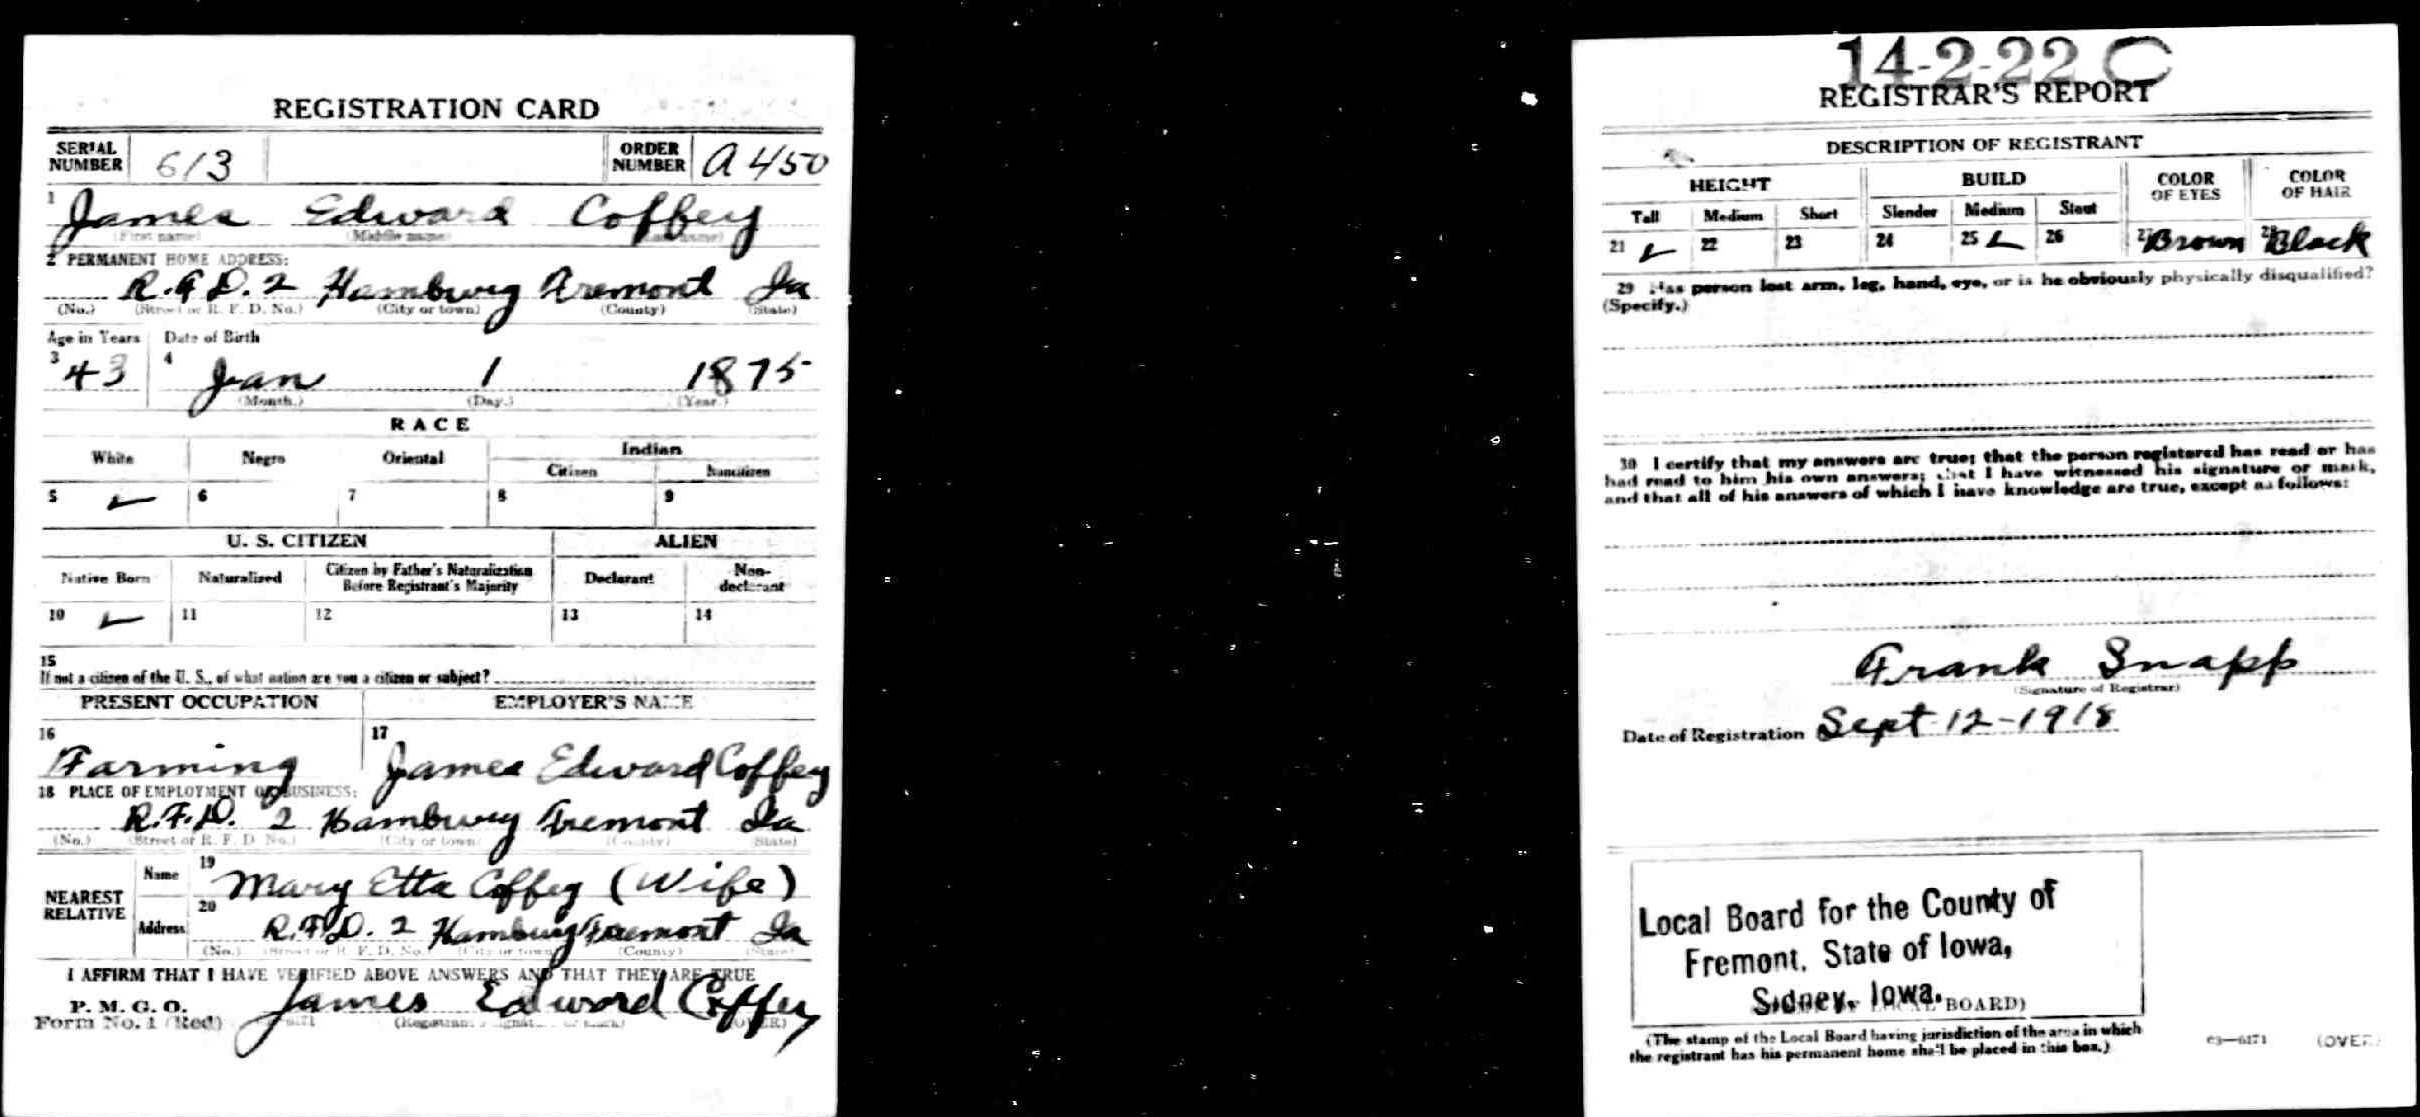 REGISTRATION CARD
SERIAL NUMBER 613 ORDER NUMBER A 450
1 James Edward Coffey
(First name) (Middle name) (Last name)
2 PERMANENT HOME ADDRESS:
R.F.D. 2 Hamburg Fremont Ia
(No.) (Street or R. F. D. No.) (City or town) (County) (State)
Age in Years Date of Birth
3 43 4 Jan 1 1875
(Month.) (Day.) (Year.)
RACE
White Negro Oriental Indian
Citizen Noncitizen
5 6 7 8 9
U. S. CITIZEN ALIEN
Native Born Naturalized Citizen by Father's Naturalization Before Registrant's Majority Declarant Non-declarant
10 11 12 13 14
15
If not a citizen of the U. S., of what nation are you a citizen or subject?
PRESENT OCCUPATION EMPLOYER'S NAME
16 Farming 17 James Edward Coffey
18 PLACE OF EMPLOYMENT OR BUSINESS:
R.F.D. 2 Hamburg Fremont Ia
(No.) (Street or R. F. D. No.) (City or town) (County) (State)
NEAREST RELATIVE Name 19 Mary Etta Coffey (Wife)
Address 20 R.F.D. 2 Hamburg Fremont Ia
(No.) (Street or R. F. D. No.) (City or town) (County) (State)
I AFFIRM THAT I HAVE VERIFIED ABOVE ANSWERS AND THAT THEY ARE TRUE
P. M. G. O.
Form No. 1 (Red) James Edward Coffey
(OVER)
14-2-22 C
REGISTRAR'S REPORT
DESCRIPTION OF REGISTRANT
HEIGHT BUILD COLOR OF EYES COLOR OF HAIR
Tall Medium Short Slender Medium Stout
21 22 23 24 25 26 27 Brown 28 Black
29 Has person lost arm, leg, hand, eye, or is he obviously physically disqualified?
(Specify.)
30 I certify that my answers are true; that the person registered has read or has
had read to him his own answers; that I have witnessed his signature or mark,
and that all of his answers of which I have knowledge are true, except as follows:
Frank Snapp
(Signature of Registrar)
Date of Registration Sept 12-1918
Local Board for the County of
Fremont, State of Iowa,
Sidney, Iowa.
BOARD)
(The stamp of the Local Board having jurisdiction of the area in which
the registrant has his permanent home shall be placed in this box.)
03—6171 (OVER)